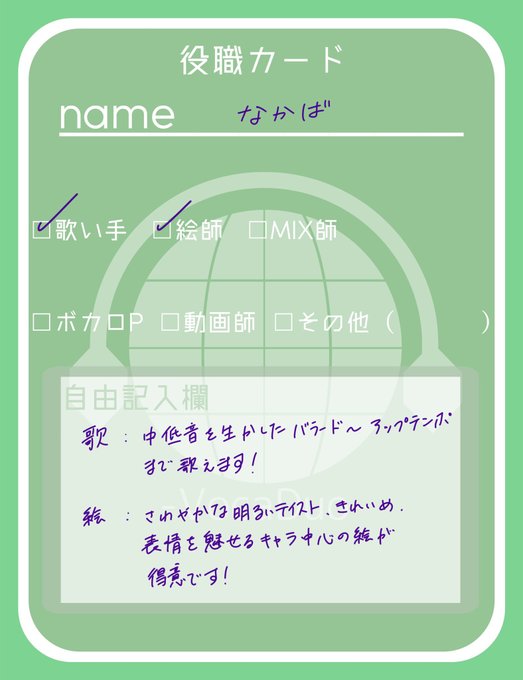 役職カード
name なかば
☑歌い手 ☑絵師 □MIX師
□ボカロP □動画師 □その他（ ）
自由記入欄
歌：中低音を生かしたバラード〜アップテンポ
まで歌えます!
VocaDuo
絵：さわやかな明るいテイスト、きれいめ、
表情を魅せるキャラ中心の絵が
得意です!